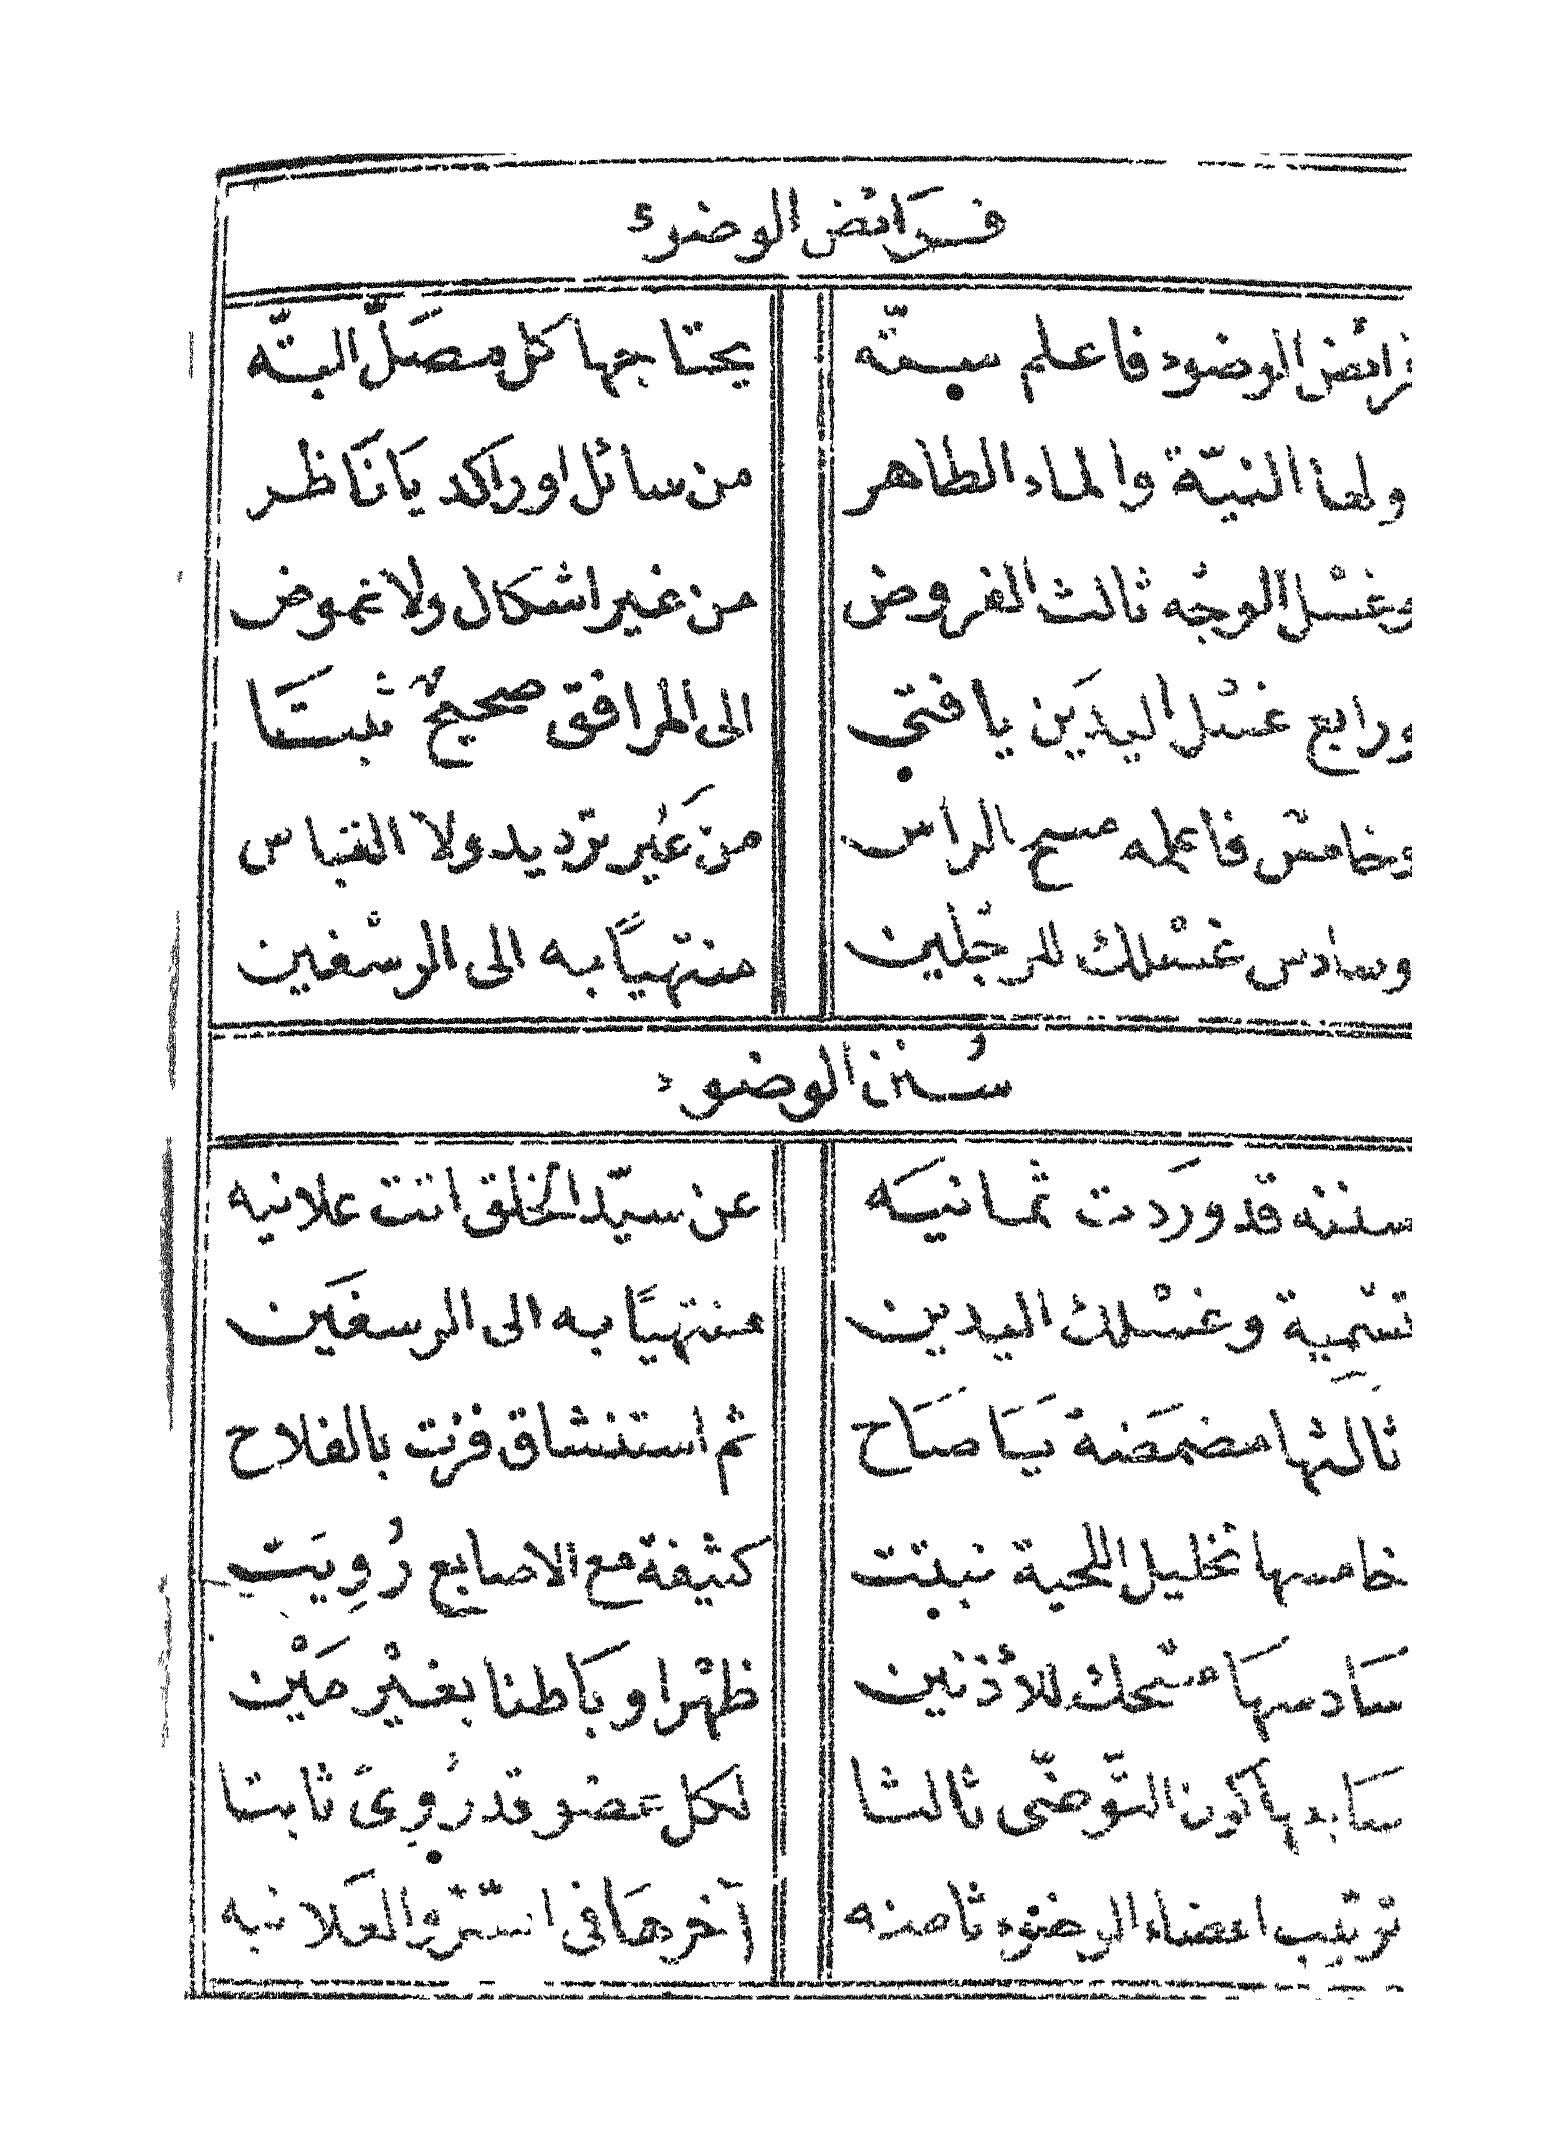 فرائض الوضوء
فرائض الوضوء فاعلم ستّه يحتاجها كل مصَلٍّ البتّه
ولها النيّة والماء الطاهر من سائل اوراكد يَا نَاظر
وغسْل الوجْه ثالث الفروض من غير اشكال ولا غموض
ورابع غسْل اليدَين يا فتى الى المرافق صحيحٌ ثبتَا
وخامس فاعمله مسح الراس منَ غير ترديد ولا التباس
وسادس غسْلك للرجْلين منتهيًا به الى الرسْغين
سُنن الوضوء
سننه قد ورَدت ثمانيَه عن سيّد الخلق اتت علانيه
تسْمية وغسْلك اليدين منتهيًا به الى الرسغَين
ثالثها مضمَضة يَا صَاح ثم استنشاق فزت بالفلاح
خامسها تخليل اللحية نبتت كثيفة مع الاصابع رُوِيَت
سَادسهَا مسْحك للأذنين ظهْرا وبَاطنا بغيْر مَيْن
سَابعهَا كون التّوضّى ثالثا لكل عضو قد رُوِىَ ثابتا
ترتيب اعضاء الوضوء ثامنه آخرهَا فى السّرّ والعَلانيه